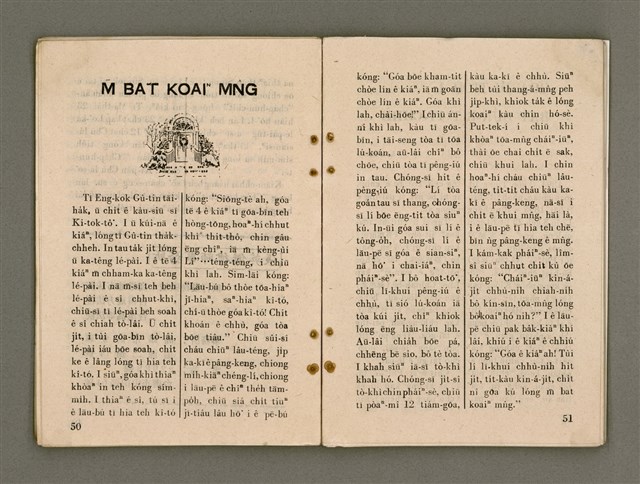 M̄ BAT KOAIⁿ MN̂G
Tī Eng-kok Gû-tin tāi-
ha̍k, ū chi̍t ê kàu-siū sī
Ki-tok-tô͘. I ū kúi-nā ê
kiáⁿ, lóng tī Gû-tin tha̍k-
chheh. In tau ta̍k ji̍t lóng
ū ka-têng lé-pài. I ê tē 4
kiáⁿ m̄ chham-ka ka-têng
lé-pài. I nā m̄-sī teh beh
lé-pài ê sî chhut-khì,
chiū-sī tī lé-pài beh soah
ê sî chiah tò-lâi. Ū chi̍t
ji̍t, i tùi góa-bīn tò-lâi,
lé-pài iáu bōe soah, chi̍t
ke ê lâng lóng tī hia teh
kî-tó. I siūⁿ, góa khì thiaⁿ
khòaⁿ in teh kóng sím-
mi̍h. I thiaⁿ ê sî, tú sī i
ê lāu-bú tī hia teh kî-tó
kóng: "Siōng-tè ah, góa
tē 4 ê kiáⁿ tī góa-bīn teh
hòng-tōng, hoaⁿ-hí chhut
khì thit-thô, chin gâu
èng chiⁿ, iā m̄ kèng-ùi
Lí"⋯téng-téng, i chiū
khì lah. Sim-lāi kóng:
"Lāu-bú bô thòe tōa-hiaⁿ
jī-hiaⁿ, saⁿ-hiaⁿ kî-tó,
chí-ū thòe góa kî-tó! Chit
khoán ê chhù, góa tòa
bōe tiâu." Chiū siù-si̍
cháu chiūⁿ lâu-téng, ji̍p
ka-kī ê pâng-keng, chiong
mi̍h-kiāⁿ chéng-lí, chiong
i lāu-pē ê chîⁿ the̍h tām-
po̍h, chiū siá chi̍t tiuⁿ
jī-tiâu lâu hō͘ i ê pē-bú
50
kóng: "Góa bōe kham-tit
chòe lín ê kiáⁿ, iā m̄ goān
chòe lín ê kiáⁿ. Góa khì
lah, chài-hōe!" I chiū án-
ní khì lah, kàu tī góa-
bīn, i tāi-seng tòa tī tōa
lú-koán, aū-lâi chîⁿ bô
chōe, chiū tòa tī pêng-iú
in tau. Chóng-sī hit ê
pêng-iú kóng: "Lí tòa
goán tau sī thang, chóng-
sī lí bōe ēng-tit tòa siuⁿ
kú. In-ūi góa sui sī lí ê
tông-o̍h, chóng-sī lí ê
lāu-pē sī góa ê sian-siⁿ,
nā hō͘ i chai-iáⁿ, chin
pháiⁿ-sè". I bô hoat-tō͘,
chiū lī-khui pêng-iú ê
chhù, tī sió lú-koán iā
tòa kúi ji̍t, chîⁿ khiok
lóng ēng liáu-liáu lah.
Aū-lâi chiáh bōe pá,
chhēng bē sio, bô tè tòa.
I khah siūⁿ iā-sī tò-khì
khah hó. Chóng-sī ji̍t-sî
tò-khì chin pháiⁿ-sè, chiū
tī pòaⁿ-mî 12 tiám-góa,
kàu ka-kī ê chhù. Siūⁿ
beh tùi thang-á-mn̂g peh
ji̍p-khì, khiok ta̍k ê lóng
koaiⁿ kàu chin hó-sè.
Put-tek-í i chiū khì
khòaⁿ tōa-mn̂g cháiⁿ-iūⁿ,
thài ōe chai chi̍t ê sak,
chiū khui lah. I chin
hoaⁿ-hí cháu chiūⁿ lâu-
téng, ti̍t-ti̍t cháu kàu ka-
kī ê pâng-keng, nā-sī i
chi̍t ê khui mn̂g, hāi lā,
i ê lāu-pē tī hia teh chē,
bīn n̂g pâng-keng ê mn̂g.
I kám-kak pháiⁿ-sè, lím-
sî siūⁿ chhut chi̍t kù ōe
kóng: "Cháiⁿ-iūⁿ kin-á-
ji̍t chhù-ni̍h chiah-ni̍h
bô kín-sīn, tōa-mn̂g lóng
bô koaiⁿ hó nih?" I ê lāu-
pē chiū pak ba̍k-kiàⁿ khí
lâi, khiú i ê kiáⁿ ê chhiú
kóng: "Góa ê kiáⁿ ah! Tùi
lí lī-khui chhù-ni̍h hit
ji̍t, ti̍t-kàu kin-á-ji̍t, chi̍t
nî góa kú lóng m̄ bat
koaiⁿ mn̂g."
51